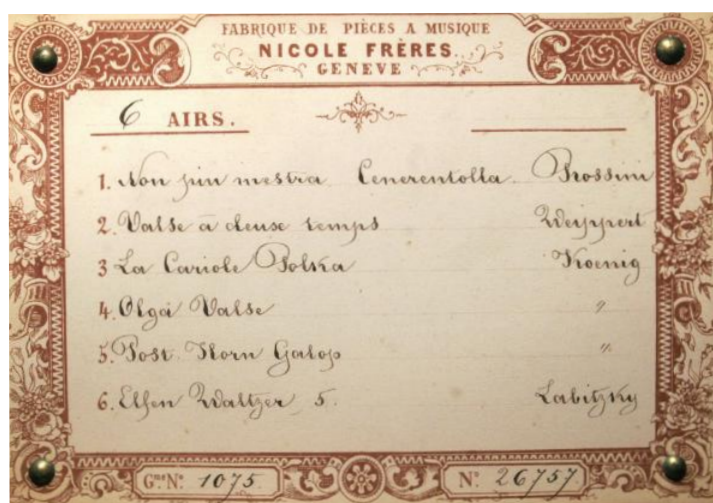 FABRIQUE DE PIÈCES A MUSIQUE
NICOLE FRÈRES.
GENEVE
6 AIRS.
1. Non piu mestra Cenerentolla Rossini
2. Valse a deuse temps Weippert
3 La Cariole Polka Koenig
4. Olga Valse "
5. Post Horn Galop "
6. Elfen Waltzer 5. Labitzky
Gme No. 1075. No. 26757.